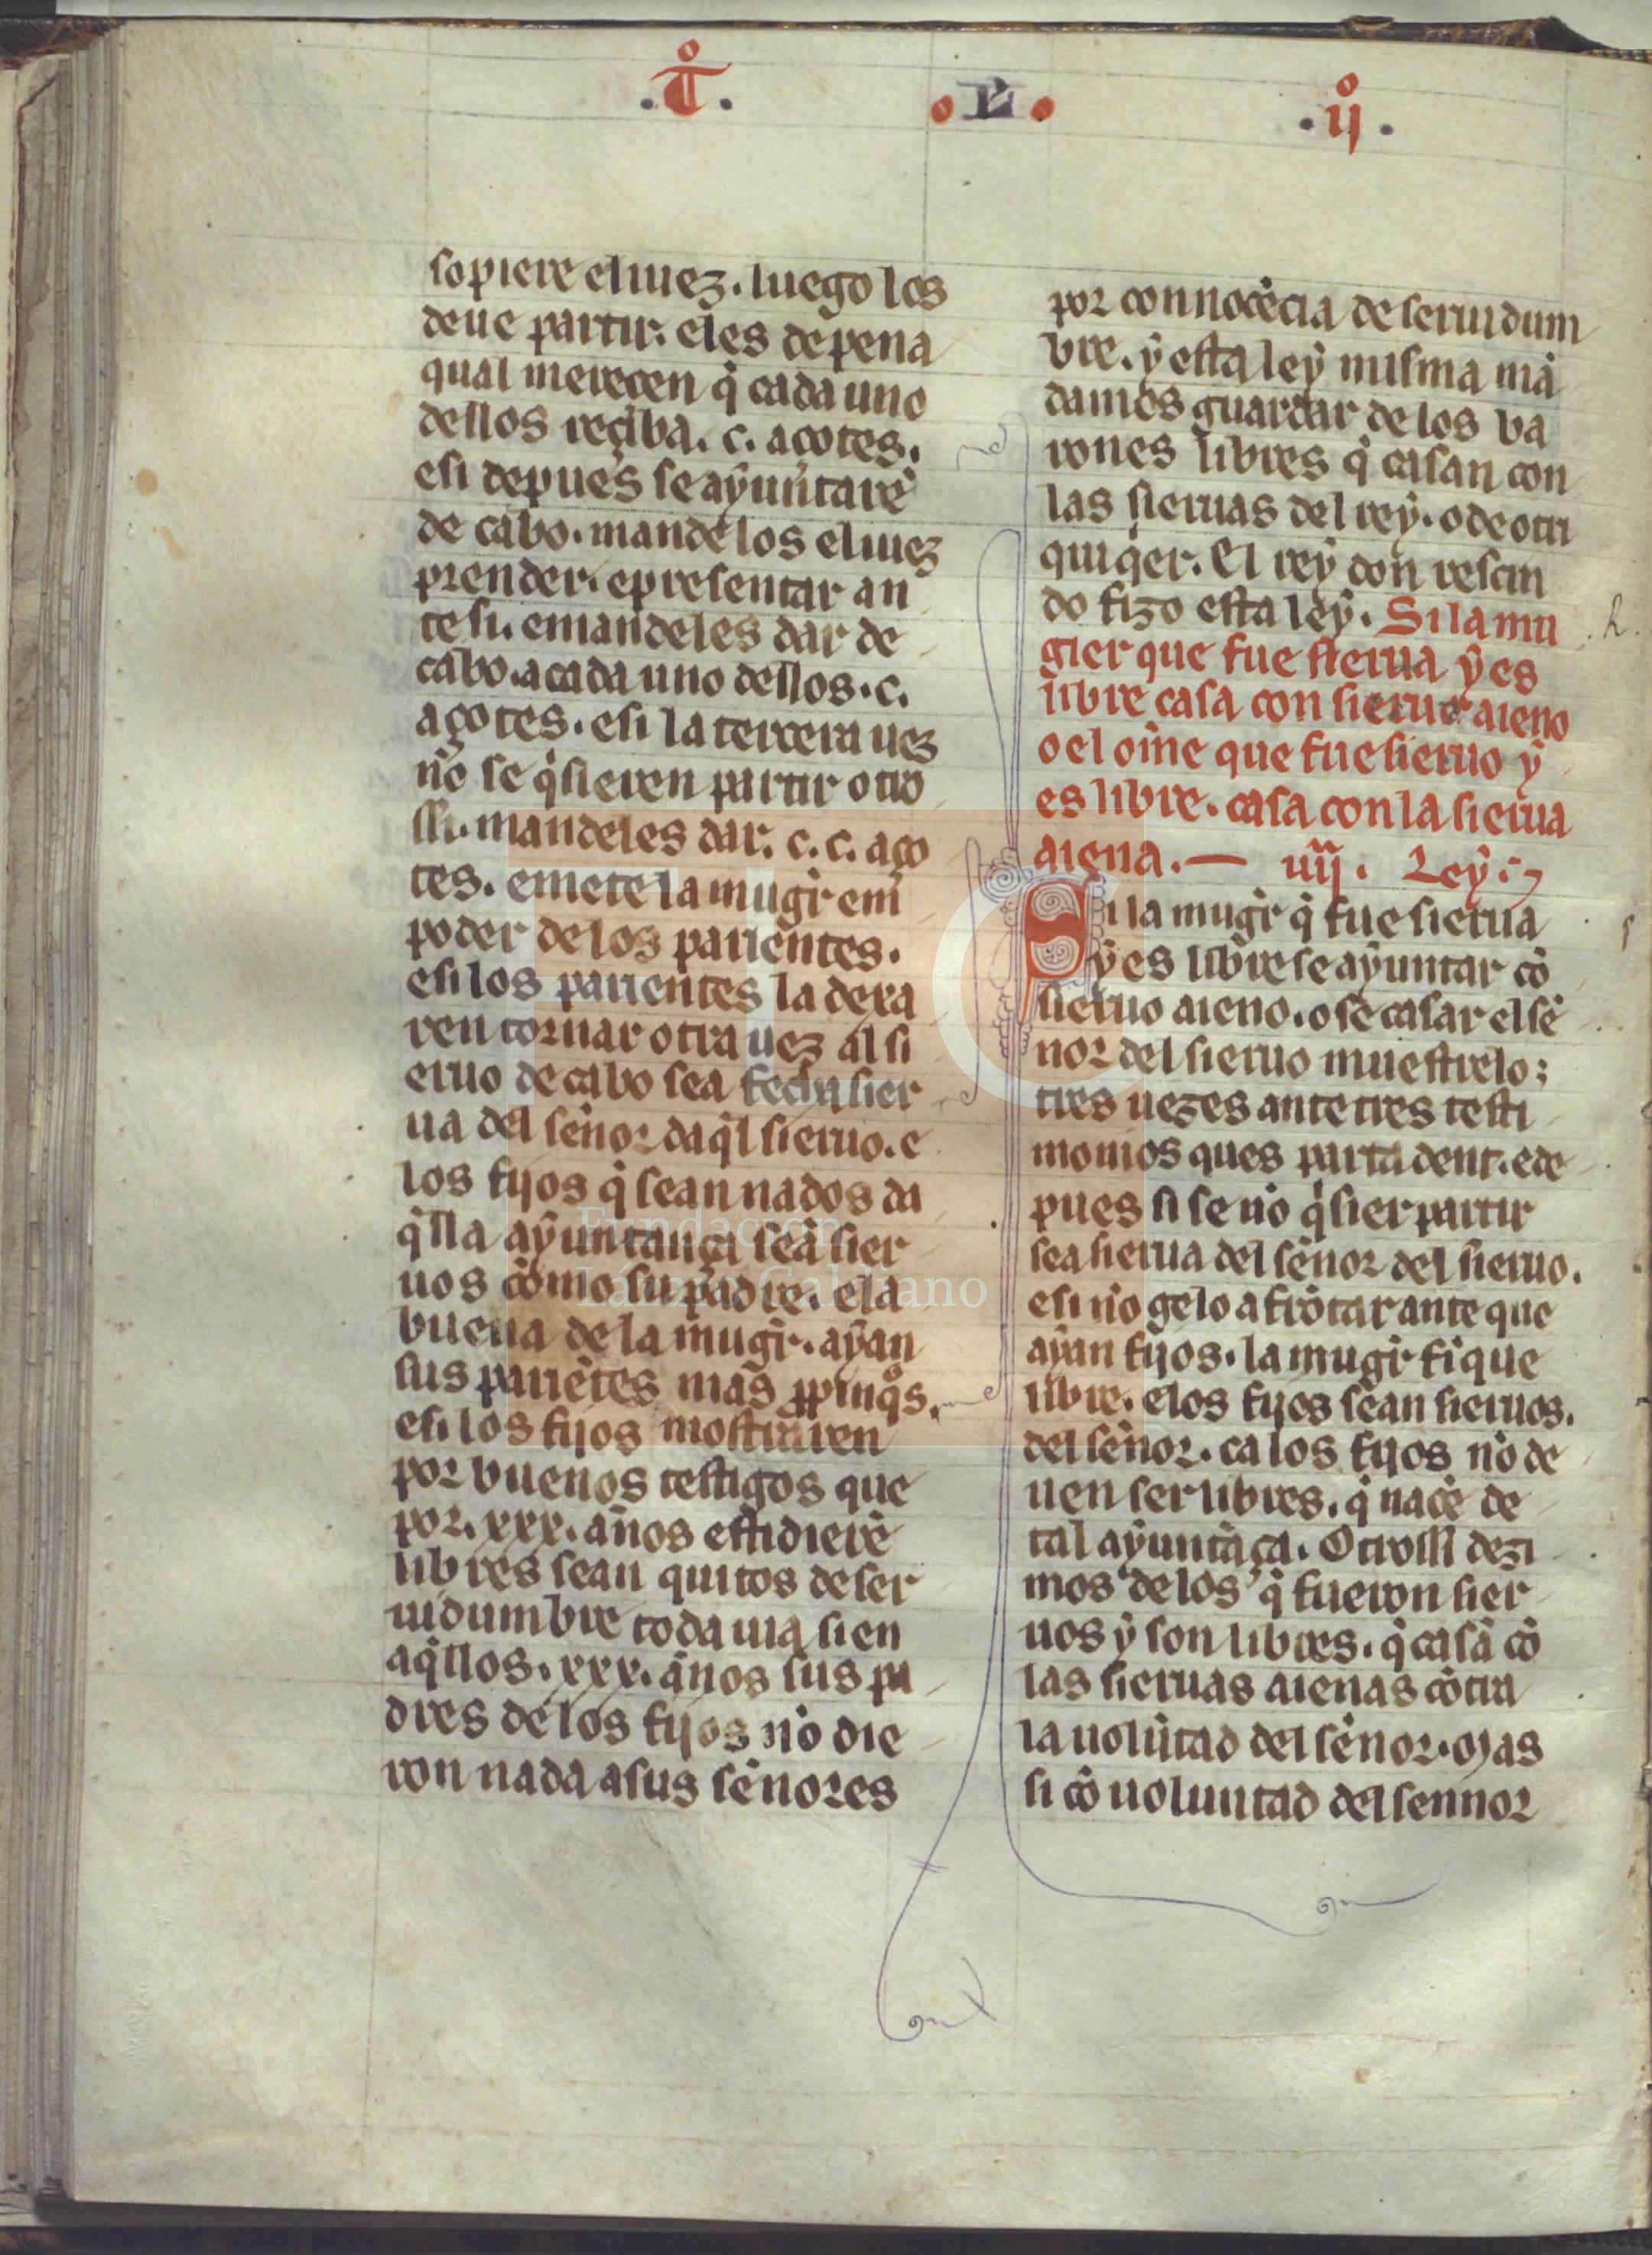 .T͂o. .L. .ijo.
sopiere el iuez. luego los
deue partir. e les de pena
qual merecen q̇ cada uno
dellos reçiba. c. açotes.
e si depues se ayuntarē
de cabo. mande los el iuez
prender. e presentar an
te si. e mandeles dar de
cabo. a cada uno dellos. c.
açotes. e si la tercera uez
nō se q̇sieren partir otro
ssi. mandeles dar. c. c. aço
tes. e mete la mugr̄ en
poder de los parientes.
e si los parientes la dexa
ren tornar otra uez al si
eruo de cabo sea fecha sier
ua del sēnor daq̇l sieruo. e
los fijos q̇ sean nados da
q̇lla ayuntança seā sier
uos cōmo su padre. e la
buena de la mugr̄. ayan
sus pariētes mas ꝓpinq̊s.
e si los fijos mostraren
por buenos testigos que
por. xxx. años estidierē
libres sean quitos de ser
uidumbre toda uia si en
aq̇llos. xxx. años sus pa
dres de los fijos nō die
ron nada a sus sēnores
por connocēcia de seruidum
bre. ẏ esta leẏ misma mā
damos guardar de los ba
rones libres q̇ casan con
las sieruas del reẏ. o de otri
qui q̇er. El reẏ don rescin
do fizo esta leẏ. Si la mu
gier que fue sierua ẏ es
libre casa con sieruo aieno
o el om̄e que fue sieruo ẏ
es libre. casa con la sierua
aiena. — iiij. Leẏ.
Si la mugr̄ q̇ fue sierua
ẏ es libre se aẏuntar cō
sieruo aieno. o se casar el sē
nor del sieruo muestrelo;
tres uezes ante tres testi
monios ques parta dent. e de
pues si se nō q̇sier partir
sea sierua del sēnor del sieruo.
e si nō gelo afrōtar ante que
aẏan fijos. la mugr̄ fique
libre. e los fijos sean sieruos.
del sēnor. ca los fijos nō de
uen ser libres. q̇ nacē de
tal aẏuntāça. Otrossi dezi
mos de los q̇ fueron sier
uos ẏ son libres. q̇ casā cō
las sieruas aienas cōtra
la uolūtad del sēnor. Mas
si cō uoluntad del sennor
Fundación
Lázaro Galdiano